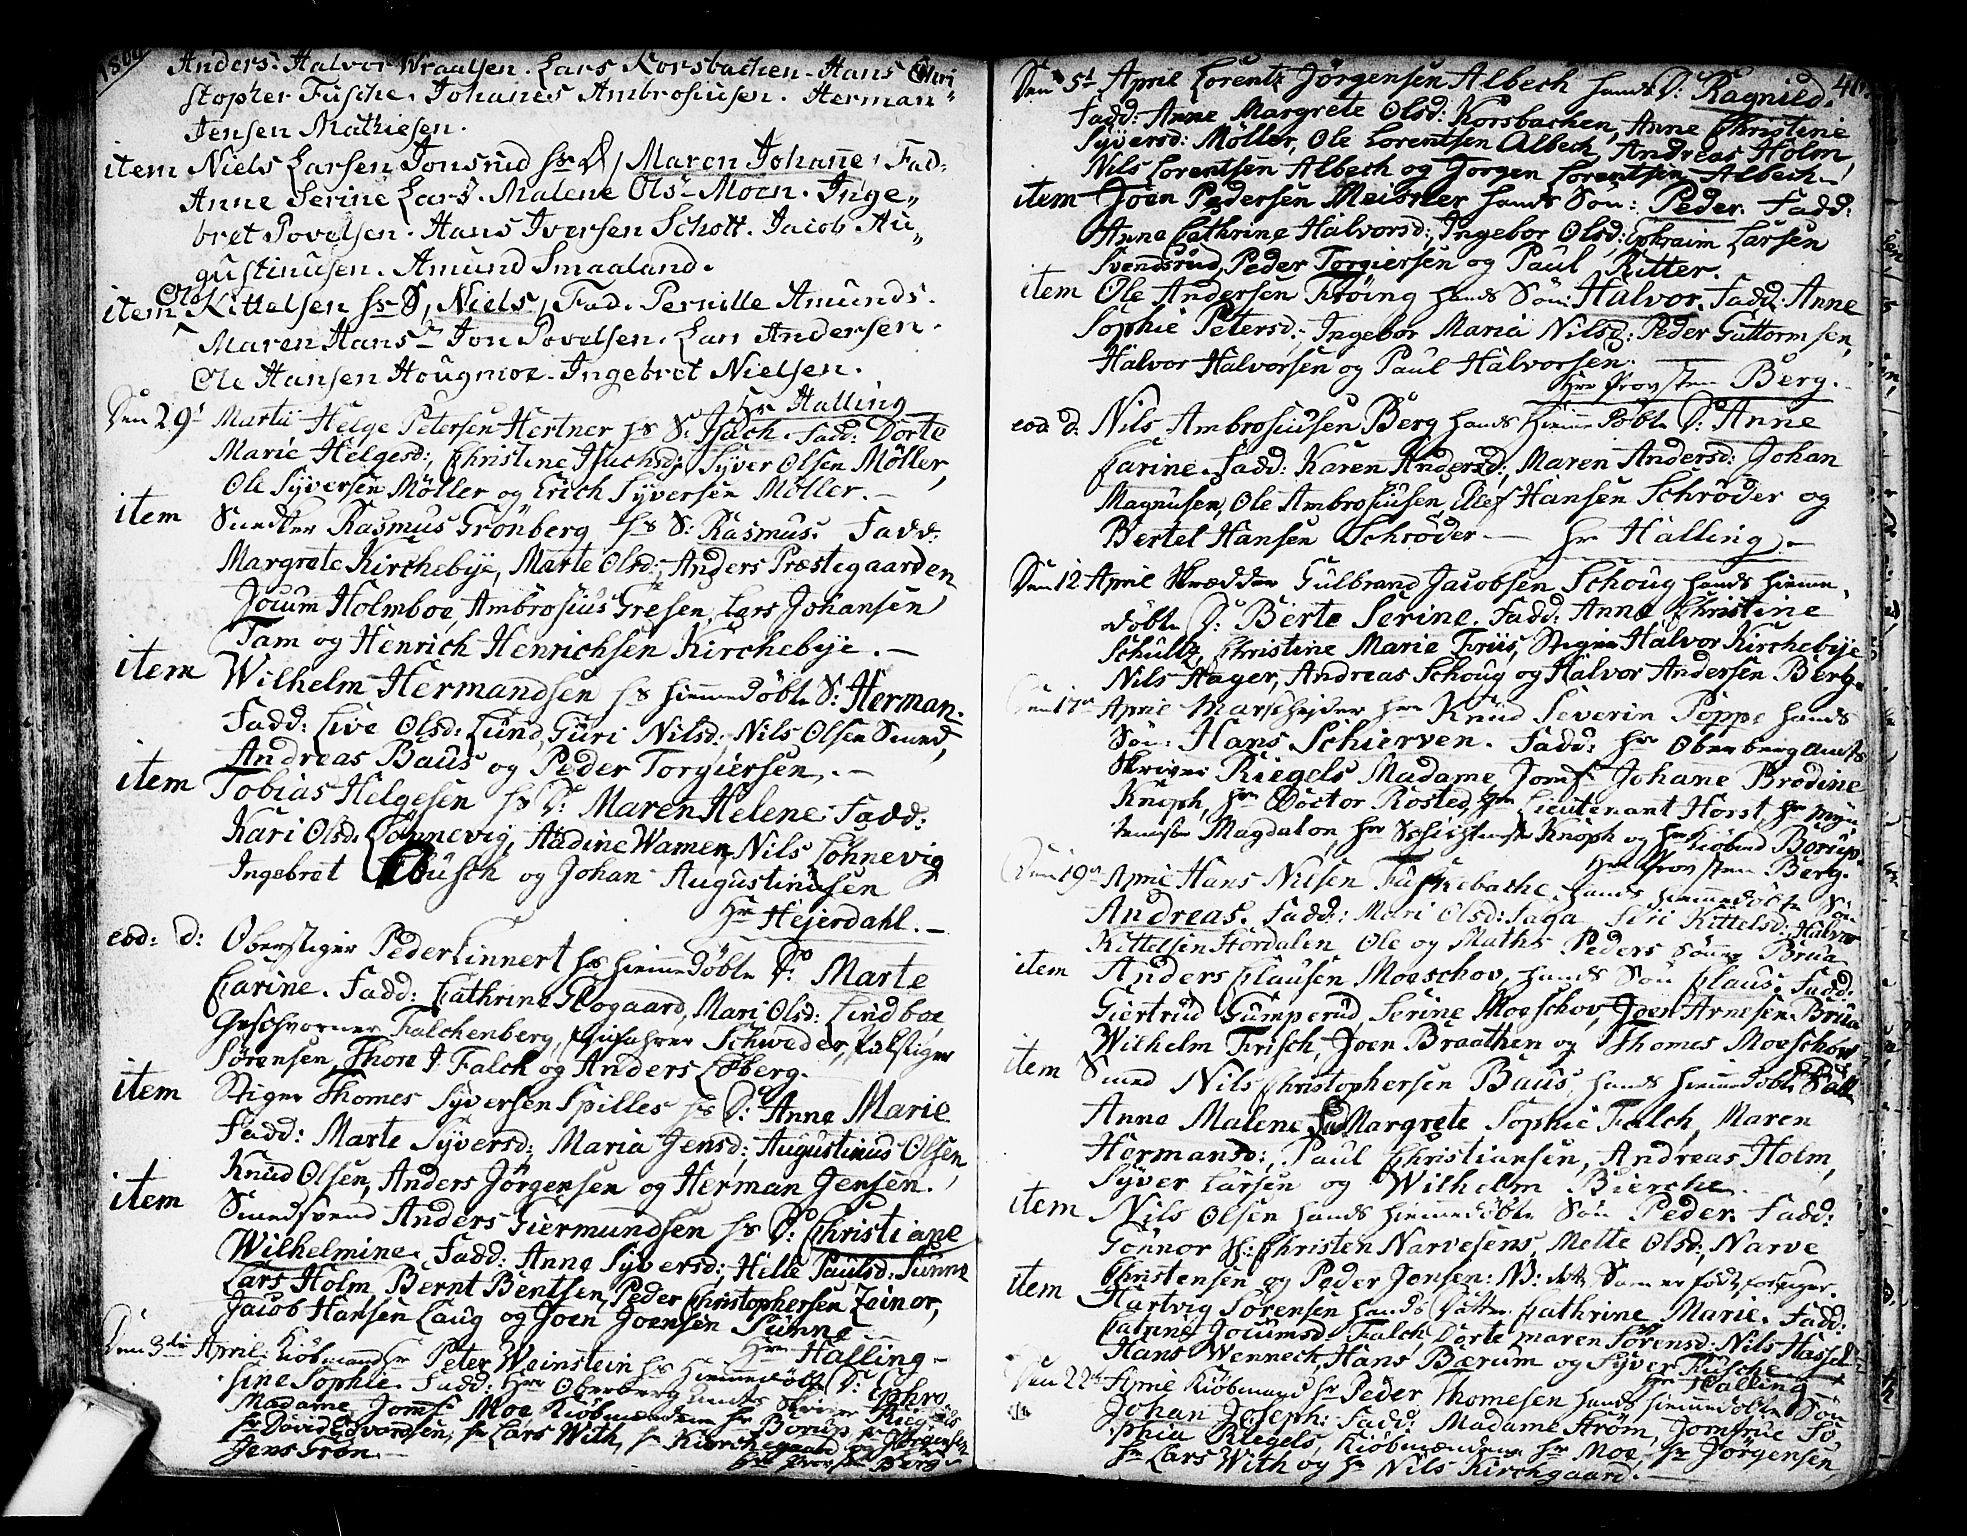 Anders. Halvor Wraalsen. Lars Korsbachen. Hans Chri
stopher Fusche. Johanes Ambrosiusen. Herman
Jensen Mathiesen.
item Niels Larsen Jonsrud hs D, Maren Johane, Fad:
Anne Serine Lars. Malene Ols Moen. Inge„
bret Povelsen. Hans Iversen Schott. Jacob Au„
gustinusen. Amund Smaaland.
item Ole Kittelsen hs S, Niels, Fad. Pernille Amunds.
Maren Hans Jon Povelsen. Lars Andersen.
Ole Hansen Hougmoe. Ingebret Nielsen.
Hr Halling
Den 29d Martii Helge Petersen Hertner hs S: Isach. Fadd: Dorte
Marie Helgesd:, Christine Isachsd:, Syver Olsen Möller,
Ole Syversen Möller og Erich Syversen Möller.—
item Smedker Rasmus Grönberg hs S: Rasmus. Fadd:
Margrete Kirchebÿe, Marte Olsd:, Anders Præstegaarden
Jocum Holmboe, Ambrosius Gresen, Lars Johansen
Tam og Henrich Henrichsen Kirchebÿe.—
item Wilhelm Hermandsen hs hiemmedöbte S: Herman.
Fadd: Live Olsd: Lund, Guri Nilsd: Nils Olsen Smed,
Andreas Baus og Peder Torgiersen.—
item Tobias Helgesen hs D: Maren Helene. Fadd:
Kari Olsd: Lönnevig, Hadine Wamen, Nils Lönnevig
Ingebret Busch og Johan Augustinusen
Hr Hejerdahl.—
eod: d: Oberstiger Peder Linnert hs hiemmedöbte D: Marte
Carine. Fadd: Cathrine Skogaard, Mari Olsd: Lindboe,
Geschvorner Falchenberg, Schweder,
Sörensen, Thore J Falch og Anders Löberg.
item Stiger Thomes Syversen Spilles hs D: Anne Marie
Fadd: Marte Syversd:, Maria Jensd:, Augustinus Olsen,
Knud Olsen, Anders Jörgensen og Herman Jensen.
item Smedsvend Anders Giermundsen hs D: Christiane
Wilhelmine. Fadd: Anne Syversd:, Helle Paulsd: Sunne
Lars Holm, Bernt Bentsen, Peder Christophersen Zeiner,
Jacob Hansen Laug og Joen Joensen Sunne
Hr Halling—
Den 3die April. Kiöbmand hr Peter Weinstein hs hiemmedöbte D: Ephro
sine Sophie. Fadd: Hr Oberbergamts Skriver Riegels
Madame, Jomf: Moe, Kiöbmændene hr Borup, hr Jörgensen
hr David Edvardsen, hr Lars With, hr Kierchegaard og
Jens Grön.
Hr Provsten Berg.
Den 5t April Lorentz Jörgensen Albech hands D: Ragnild.
Fadd: Anne Margrete Olsd: Korsbachen, Anne Christine
Syversd: Möller, Ole Lorentsen Albech, Andreas Holm,
Nils Lorentsen Albech og Jörgen Lorentsen Albech.—
item Joen Pedersen Meisner hands Sön: Peder. Fadd:
Anna Cathrine Halvorsd:, Ingebor Olsd:, Ephraim Larsen
Svendsrud, Peder Torgiersen og Paul Ritter.
item Ole Andersen Fröing hands Sön: Halvor. Fadd: Anne
Sophie Petersd:, Ingebor Maria Nilsd: Peder Guttormsen,
Halvor Halvorsen og Paul Halvorsen.
Hr Provsten Berg.
eod: d: Nils Ambrosiusen Berg hands hiemmedöbte D: Anne
Carine. Fadd: Karen Andersd: Maren Andersd: Johan
Magnusen, Ole Ambrosiusen, Elef Hansen Schröder og
Bertel Hansen Schröder.— Hr Halling.—
Den 12 April Skrædder Gulbrand Jacobsen Schoug hands hiemme
döbte D: Berte Serine. Fadd: Anne Christine
Schultz, Christine Marie Friis, Stiger Halvor Kirchebÿe
Nils Hager, Andreas Schoug og Halvor Andersen Berg.
Den 17de April Marschejder hr Knud Severin Poppe hands
Sön: Hans Schierven. Fadd: hr Oberbergamts
Skriver Riegels Madame, Jomf: Johane Brodine
Knoph, hr Doctor Rosted, hr Lieutenant Horst, hr Myn
temester Magdalon, hr Knoph og hr Kiöbmd Borup.
Hr Provsten Berg.
Den 19de April Hans Nilsen Fuskebache hands hiemmedöbte Sön
Andreas. Fadd: Mari Olsd: Saga Siri Kittelsd: Halvor
Kittelsen Hördalen Ole og Maths Peders Sönner Brua
item Anders Clausen Moeschov, hands Sön Claus. Fadd:
Giertrud Gumperud, Serine Moeschov, Joen Arnesen Brua
Wilhelm Frisch, Joen Braathen og Thomes Moeschov
item Smed Nils Christophersen Baus, hands hiemmedöbte
Anne Malene Fad Margrete Sophie Falch, Maren
Hermansd:, Paul Christiansen, Andreas Holm,
Syver Larsen og Wilhelm Bierche.
item Nils Olsen hands hiemmedöbte Sön Peder. Fadd:
Gonnor H: Christen Narvesens, Mette Olsd:, Narve
Christensen og Peder Jensen: NB: dette Barn er födt
item Hartvig Sörensen hands Datter Cathrine Marie. Fadd:
Catrine Jocumsd: Falch, Dorte Maren Sörensd: Nils Hassel
Hans Wennech, Hans Bærum og Syver Fusche
Hr Halling
Den 22de Kiöbmand hr Peder Thomesen hands hiemmedöbte Sön
Johan Joseph: Fadd: Madame Ström, Jomfrue So
phia Riegels, Kiöbmændene hr Moe, hr Jörgensen,
hr Lars With og hr Nils Kirchgaard.—